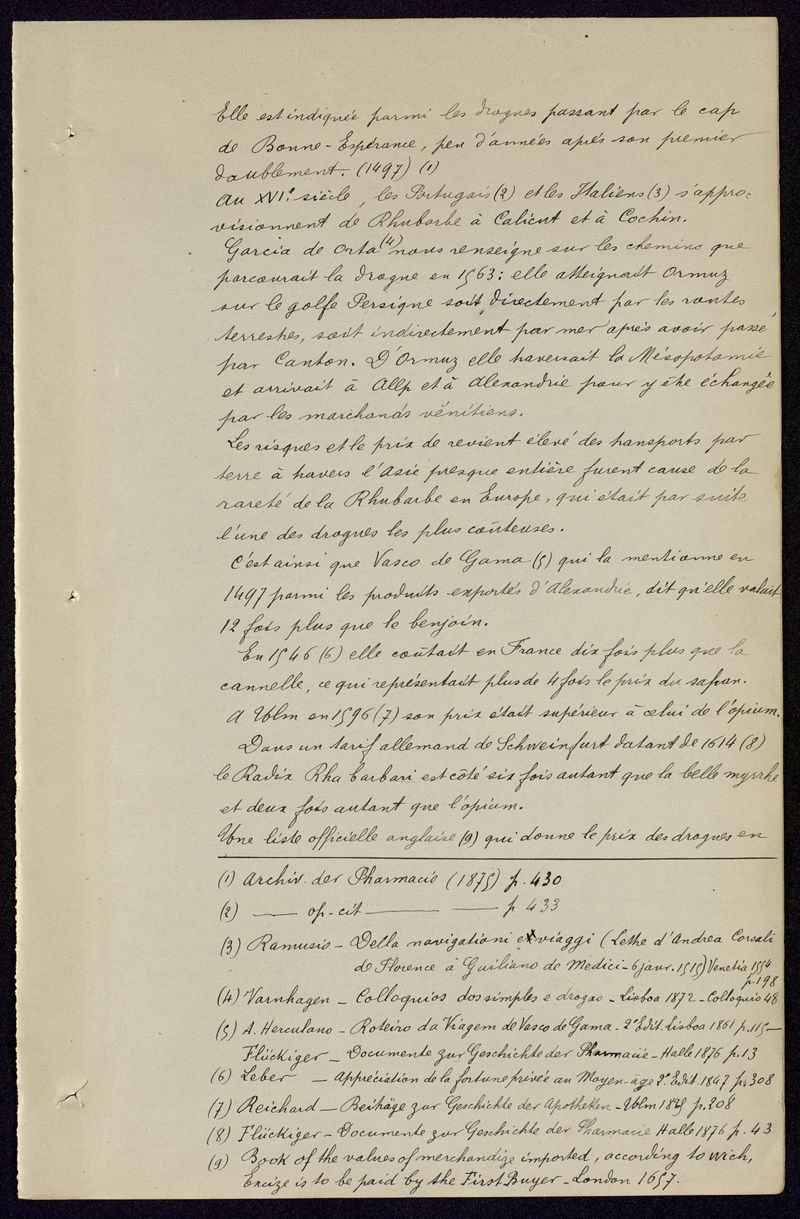 Elle est indiquée parmi les drogues passant par le cap
de Bonne-Espérance, peu d'années après son premier
doublement. (1497) (1)
Au XVIe siècle, les Portugais (2) et les Italiens (3) s'appro-
visionnent de Rhubarbe à Calicut et à Cochin.
Garcia de Orta (4) nous renseigne sur les chemins que
parcourait la drogue en 1563: elle atteignait Ormuz
sur le golfe Persique soit directement par les routes
terrestres, soit indirectement par mer après avoir passé
par Canton. D'Ormuz elle traversait la Mésopotamie
et arrivait à Allp et à Alexandrie pour y être échangée
par les marchands vénitiens.
Les risques et le prix de revient élevé des transports par
terre à travers l'Asie presque entière furent cause de la
rareté de la Rhubarbe en Europe, qui était par suite
l'une des drogues les plus coûteuses.
C'est ainsi que Vasco de Gama (5) qui la mentionne en
1497 parmi les produits exportés d'Alexandrie, dit qu'elle valait
12 fois plus que le benjoin.
En 1546 (6) elle coûtait en France dix fois plus que la
cannelle, ce qui représentait plus de 4 fois le prix du safran.
A Ublm en 1596 (7) son prix était supérieur à celui de l'opium.
Dans un tarif allemand de Schweinfurt datant de 1614 (8)
le Radix Rha barbari est côté six fois autant que la belle myrrhe
et deux fois autant que l'opium.
Une liste officielle anglaise (9) qui donne le prix des drogues en
(1) Archiv. der Pharmacie (1875) p. 430
(2) —— op-cit —— —— p 433
(3) Ramusio - Della navigationi et viaggi (Lettre d'Andrea Corsali
de Florence à Guiliano de Medici - 6 janv. 1515) Venetia 1554
p. 198
(4) Varnhagen - Colloquios dos simples e drogas - Lisboa 1872 - Colloquio 48
(5) A. Herculano - Roteiro da Viagem de Vasco de Gama - 2e Edit. Lisboa 1861 p. 115 -
Flückiger - Documente zur Geschichte der Pharmacie - Halle 1876 p. 13
(6) Leber - Appréciation de la fortune privée au Moyen-âge 2e Edit. 1847 p. 308
(7) Reichard - Beiträge zur Geschichte der Apotheken - Ublm 1825 p. 208
(8) Flückiger - Documente zur Geschichte der Pharmacie Halle 1876 p. 43
(9) Book of the values of merchandize imported, according to wich,
Excize is to be paid by the First Buyer - London 1657.